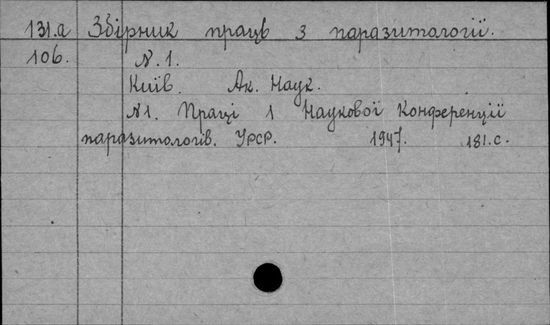 131.а Збірник праць з паразитології.
106. N.1.
Київ. Ак. Наук.
N1. Праці 1 Наукової Конференції
паразитологів. УРСР. 1947. 181.с.